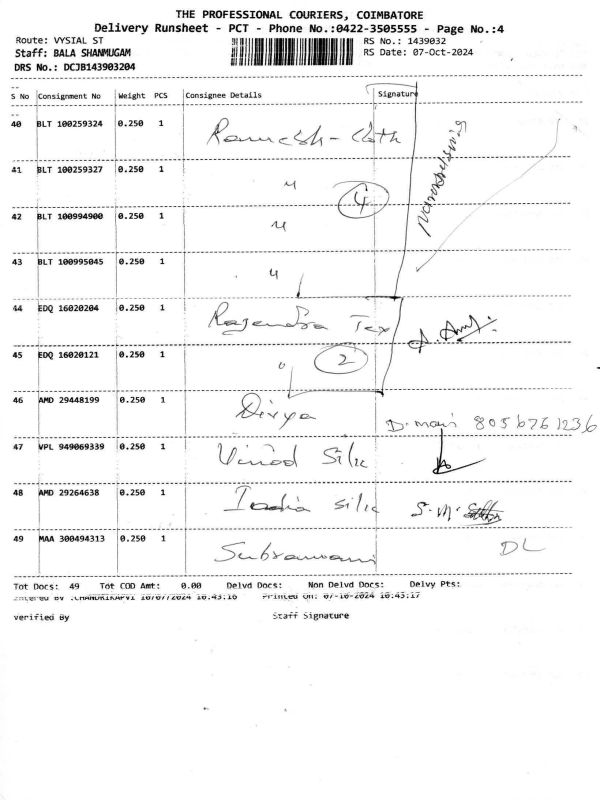 THE PROFESSIONAL COURIERS, COIMBATORE
Delivery Runsheet - PCT - Phone No.:0422-3505555 - Page No.:4
Route: VYSIAL ST RS No.: 1439032
Staff: BALA SHANMUGAM RS Date: 07-Oct-2024
DRS No.: DCJB143903204
S No Consignment No Weight PCS Consignee Details Signature
40 BLT 100259324 0.250 1 Ramesh - Cloth
41 BLT 100259327 0.250 1 "
4
42 BLT 100994900 0.250 1 "
43 BLT 100995045 0.250 1 "
44 EDQ 16020204 0.250 1 Rajendra Tex
45 EDQ 16020121 0.250 1 "
2
46 AMD 29448199 0.250 1 Divya D. mani 8056761236
47 VPL 949069339 0.250 1 Vinod Silk
48 AMD 29264638 0.250 1 India silk S.M.
49 MAA 300494313 0.250 1 Subramani DL
Tot Docs: 49 Tot COD Amt: 0.00 Delvd Docs: Non Delvd Docs: Delvy Pts:
Entered By :CHANDRIKAPVT 10/07/2024 10:43:16 Printed On: 07-10-2024 10:43:17
verified By Staff Signature